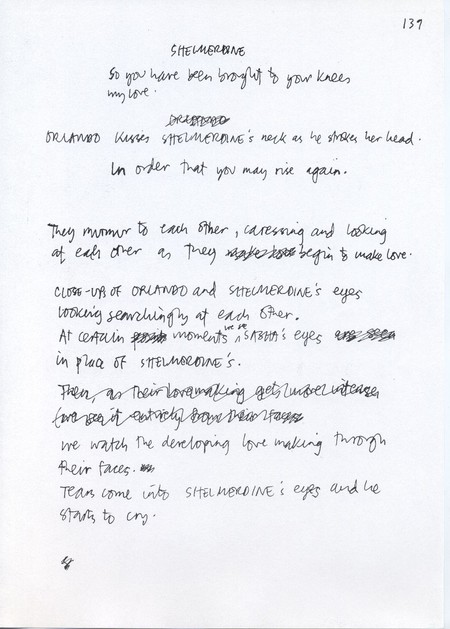 139
SHELMERDINE
So you have been brought to your knees
my love.
ORLANDO kisses SHELMERDINE's neck as he strokes her head.
In order that you may rise again.
They murmur to each other, caressing and looking
at each other as they begin to make love.
CLOSE-UPS OF ORLANDO and SHELMERDINE's eyes
looking searchingly at each other.
At certain moments we see SASHA's eyes
in place of SHELMERDINE's.
Then, as their lovemaking gets more intense
we see it entirely from their faces
we watch the developing love making through
their faces.
Tears come into SHELMERDINE's eyes and he
starts to cry.